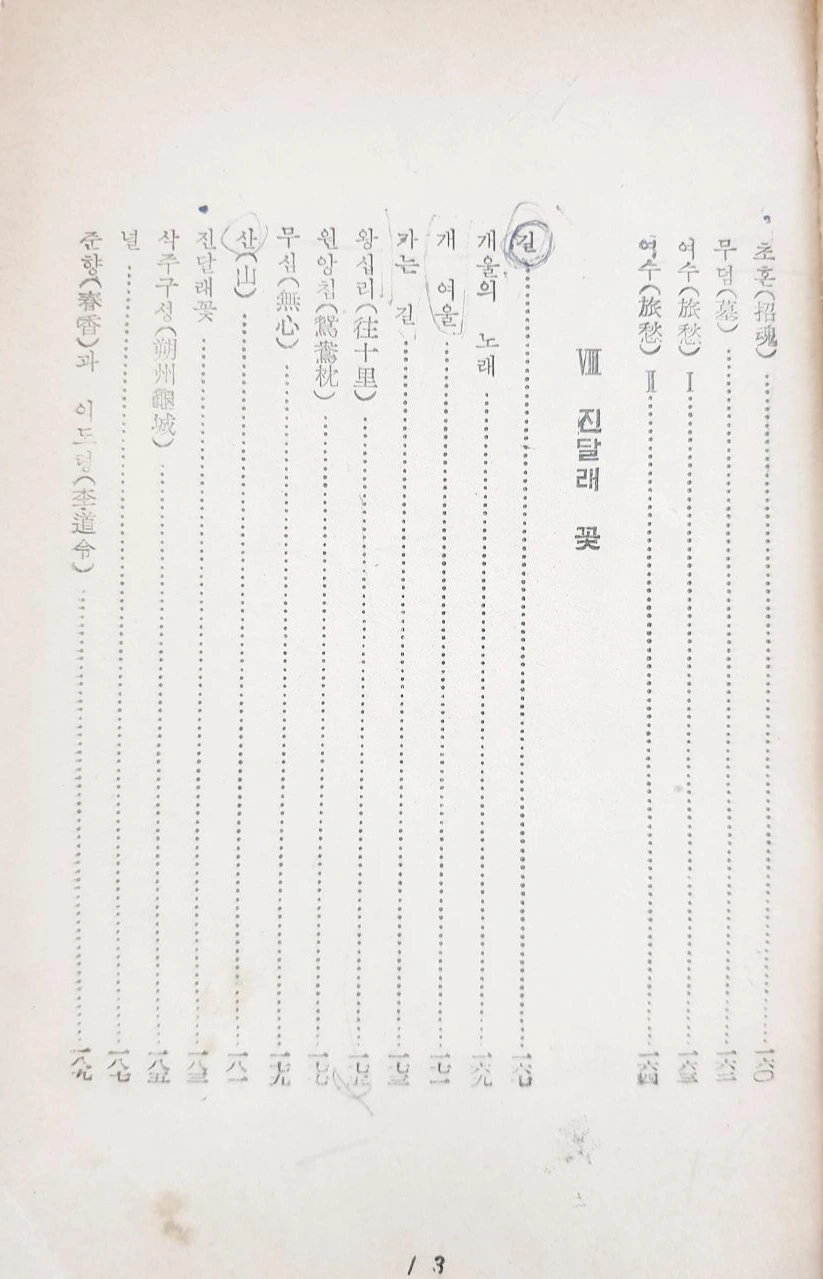 초혼(招魂)……一六〇
무덤(墓)……一六二
여수(旅愁) Ⅰ……一六三
여수(旅愁) Ⅱ……一六四
Ⅷ 진달래 꽃
길……一六七
개울의 노래……一六九
개 여울……一七一
가는 길……一七三
왕십리(往十里)……一七五
원앙침(鴛鴦枕)……一七七
무심(無心)……一七九
산(山)……一八一
진달래꽃……一八三
삭주구성(朔州龜城)……一八五
널……一八七
춘향(春香)과 이도령(李道令)……一八九
13